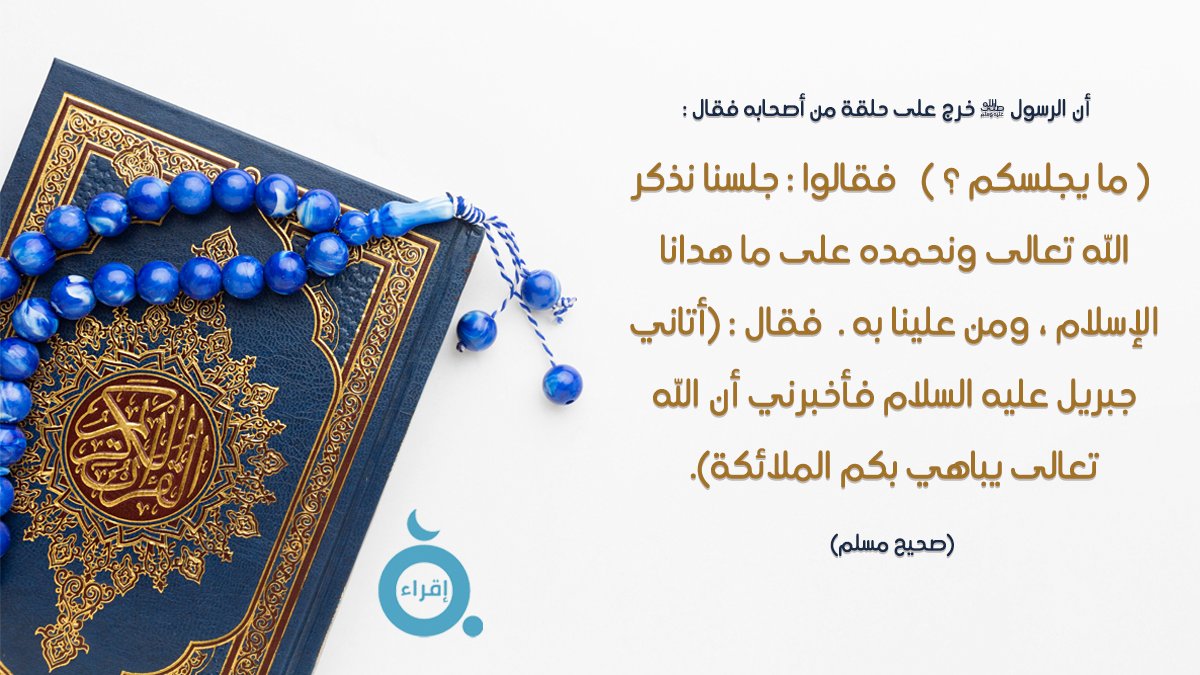 أن الرسول ﷺ خرج على حلقة من أصحابه فقال :
( ما يجلسكم ؟ ) فقالوا : جلسنا نذكر
الله تعالى ونحمده على ما هدانا
الإسلام ، ومن علينا به . فقال : (أتاني
جبريل عليه السلام فأخبرني أن الله
تعالى يباهي بكم الملائكة).
(صحيح مسلم)
إقراء
القرآن الكريم